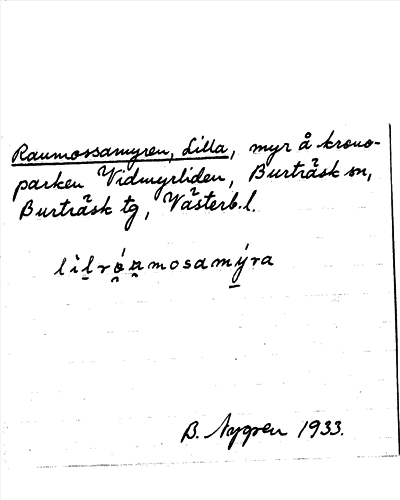 Raumossamyren, Lilla, myr å krono-
parken Vidmyrliden, Burträsk sn,
Burträsk tg, Västerb.l.
lìl̠rọ́n̠mosamý̠ra
B. Nygren 1933.